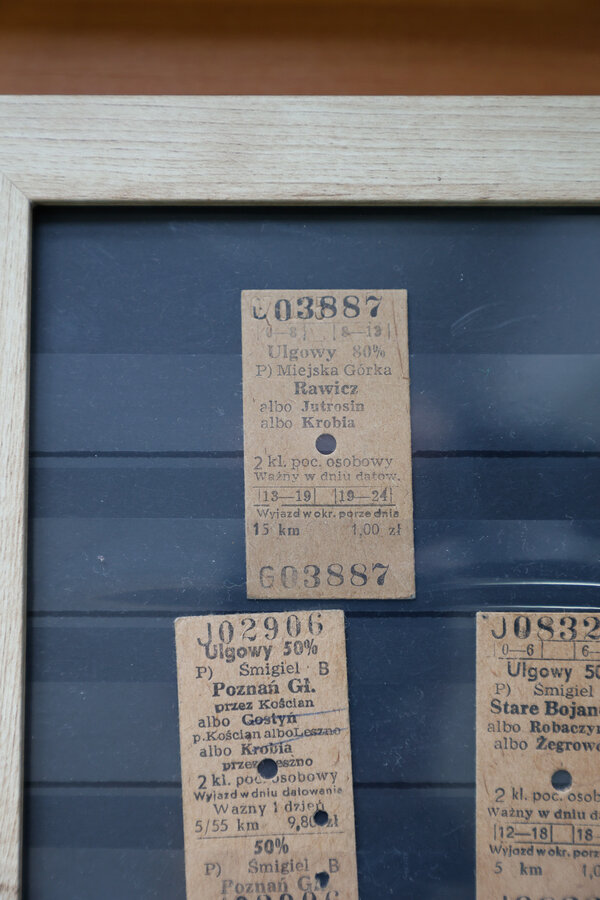 G03887
0—8 8—13
Ulgowy 80%
P) Miejska Górka
Rawicz
albo Jutrosin
albo Krobia
2 kl. poc. osobowy
Ważny w dniu datow.
13—19 19—24
Wyjazd w okr. porze dnia
15 km 1,00 zł
G03887
J02906
Ulgowy 50%
P) Śmigiel B
Poznań Gł.
przez Kościan
albo Gostyń
p.Kościan albo Leszno
albo Krobia
przez Leszno
2 kl. poc. osobowy
Wyjazd w dniu datowania
Ważny 1 dzień
5/55 km 9,80 zł
50%
P) Śmigiel B
Poznań Gł.
J0832
0—6 6—
Ulgowy 50
P) Śmigiel
Stare Bojan
albo Robaczyn
albo Żegrowo
2 kl. poc. osob
Ważny w dniu da
12—18 18—
Wyjazd w okr. por
5 km 1,0